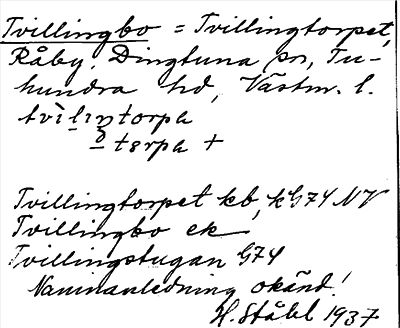 Tvillingbo = Tvillingtorpet,
Råby, Dingtuna sn, Tu-
hundra hd, Västm. l.
tvìlıŋtorpa
torpa +
Tvillingtorpet kb, k G74 NV
Tvillingbo ek
Tvillingstugan G74
Namnanledning okänd!
H. Ståhl 1937